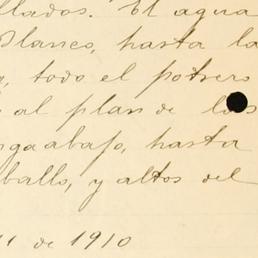 llados. El agua
Blanco, hasta la
todo el potrero
al plan de los
nga abajo, hasta
ballo, y altos del
11 de 1910